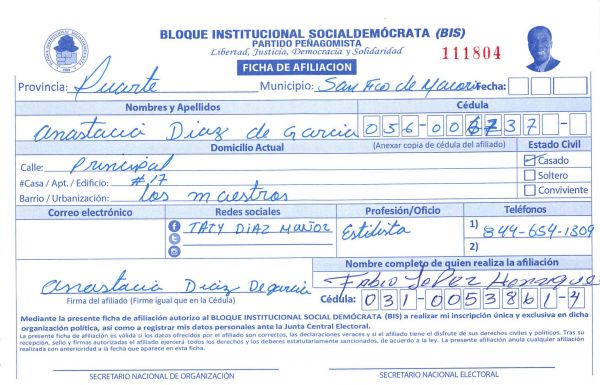 BLOQUE INSTITUCIONAL SOCIALDEMÓCRATA (BIS)
PARTIDO PEÑAGOMISTA
Libertad, Justicia, Democracia y Solidaridad
111804
FICHA DE AFILIACION
Provincia: Duarte Municipio: San Fco de Macoris Fecha:
Nombres y Apellidos Cédula
Anastacia Diaz de Garcia 056-00 737-
Domicilio Actual (Anexar copia de cédula del afiliado) Estado Civil
Calle: Principal Casado
#Casa / Apt. / Edificio: #17 Soltero
Barrio / Urbanización: Los maestros Conviviente
Correo electrónico Redes sociales Profesión/Oficio Teléfonos
TATY DIAZ MUÑOZ Estilista 1) 844-654-1309
2)
Nombre completo de quien realiza la afiliación
Anastacia Diaz De garcia Fabio Lopez
Firma del afiliado (Firme igual que en la Cédula) Cédula: 031-0053861-4
Mediante la presente ficha de afiliación autorizo al BLOQUE INSTITUCIONAL SOCIAL DEMÓCRATA (BIS) a realizar mi inscripción única y exclusiva en dicha
organización politica, así como a registrar mis datos personales ante la Junta Central Electoral.
La presente ficha de afiliación es válida si los datos ofrecidos por el afiliado son correctos, las declaraciones veraces y si el afiliado tiene el disfrute de sus derechos civiles y políticos. Tras su
recepción, sello y firmas autorizadas el afiliado ejercerá todos los derechos y los deberes estatutariamente sancionados, de acuerdo a la ley. La presente afiliación anula cualquier afiliación
realizada con anterioridad a la fecha que aparece en esta ficha.
SECRETARIO NACIONAL DE ORGANIZACIÓN SECRETARIO NACIONAL ELECTORAL